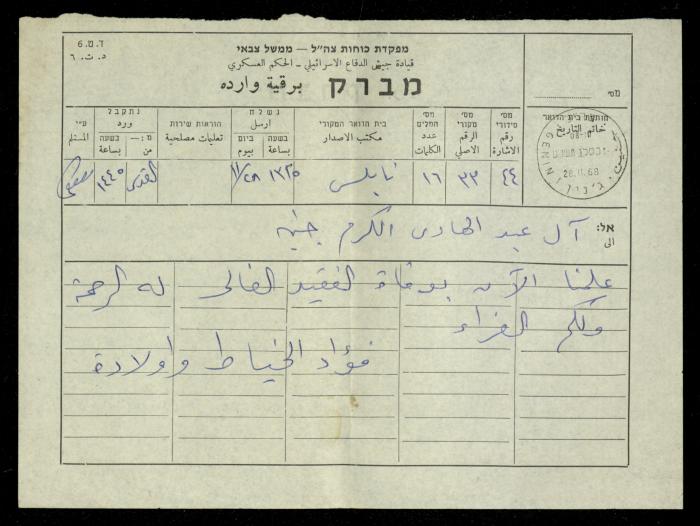 ד.ט.6
د.ت.٦
מפקדת כוחות צה"ל — ממשל צבאי
قيادة جيش الدفاع الاسرائيلي - الحكم العسكري
מברק برقية وارده
מס׳
מס׳ סידורי
رقم الاشارة
מס׳ מקורי
الرقم الاصلي
מס׳ המלים
عدد الكلمات
בית הדואר המקורי
مكتب الاصدار
נשלח
ارسل
בשעה
بساعة
ביום
بيوم
הוראות שירות
تعليمات مصلحية
נתקבל
ورد
בשעה
بساعة
מ: —
من
ע"י
المستلم
חותמת בית הדואר
خاتم التاريخ
JENIN
28.11.68
٤٤
٣٣
١٦
نابلس
١٣٢٥
١١/٢٨
القدس
١٤٤٥
אל:
الى
آل عبد الهادي الكرام جنين
علمنا الآن بوفاة الفقيد الغالي له الرحمة
ولكم العزاء
فؤاد الخياط واولادة